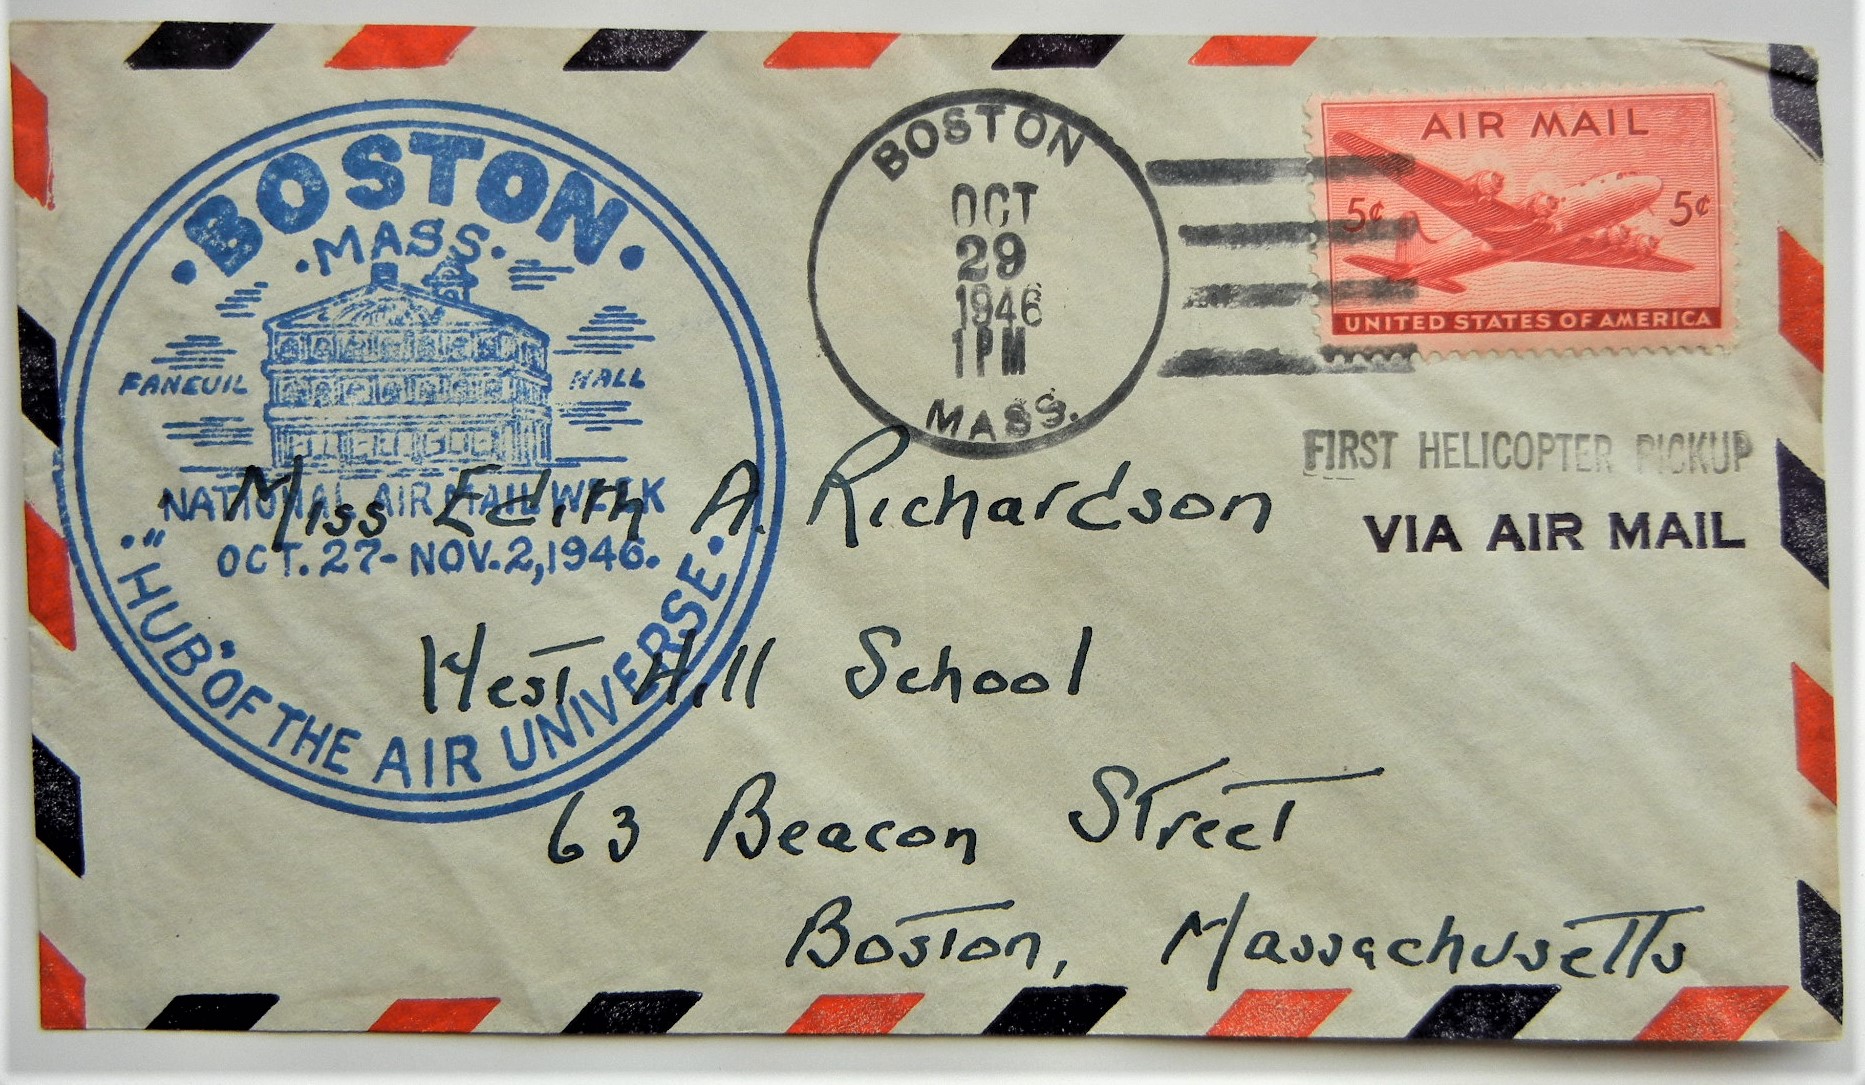 ·BOSTON·
·MASS.·
FANEUIL HALL
NATIONAL AIR MAIL WEEK
OCT. 27-NOV. 2, 1946.
·"HUB" OF THE AIR UNIVERSE·
BOSTON
OCT
29
1946
1 PM
MASS.
AIR MAIL
5¢ 5¢
UNITED STATES OF AMERICA
FIRST HELICOPTER PICKUP
VIA AIR MAIL
Miss Edith A. Richardson
West Hill School
63 Beacon Street
Boston, Massachusetts